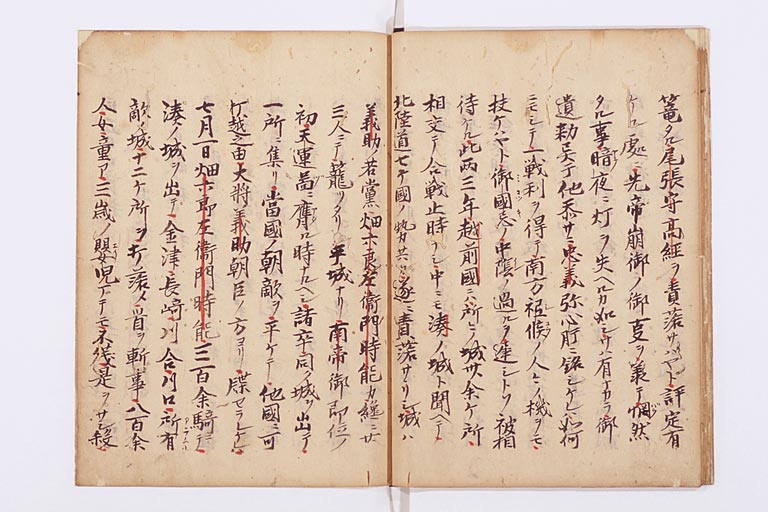 篭タル尾張守高経ヲ責落サハヤト評定有
ケル処ニ先帝崩御ノ御一夏ヲ兼テ惘然
タル事暗夜ニ灯ヲ失ヘルカ如シサハ有ナカラ御
遺勅異于他忝サニ忠義弥心肝ニ銘シケレハ如何
ニモシテ一戦利ヲ得テ南方祗候ノ人々ノ機ヲモ
扶ケハヤト御國忌ノ中陰ノ過ルヲ遅シトソ被相
待ケル此両三年越前國ニハ所々ノ城卅余ケ所
相交テ合戦止時ナシ中ニモ湊ノ城ト聞ヘテ
北陸道七ケ國ノ勢共カ遂ニ責落サヽリシ城ハ
義助若黨畑六郎左衛門時能カ纔ニ廿
三人ニテ籠リタリシ平城ナリ南帝御即位ノ
初天運啚ニ膺ル時ナルヘシ諸卒同ク城ヲ出テ
一所ニ集リ當國ノ朝敵ヲ平ケテ他國ニ可
打越之由大將義助朝臣ノ方ヨリ牒セラレケレハ
七月一日畑六郎左衛門時能三百余騎ニテ
湊ノ城ヲ出テ金津長﨑川合川口ニ所有
敵ノ城十二ケ所ヲ打落メ首ヲ斬事八百余
人女童ア三歳ノ嬰児ニテモ不残是ヲサシ殺